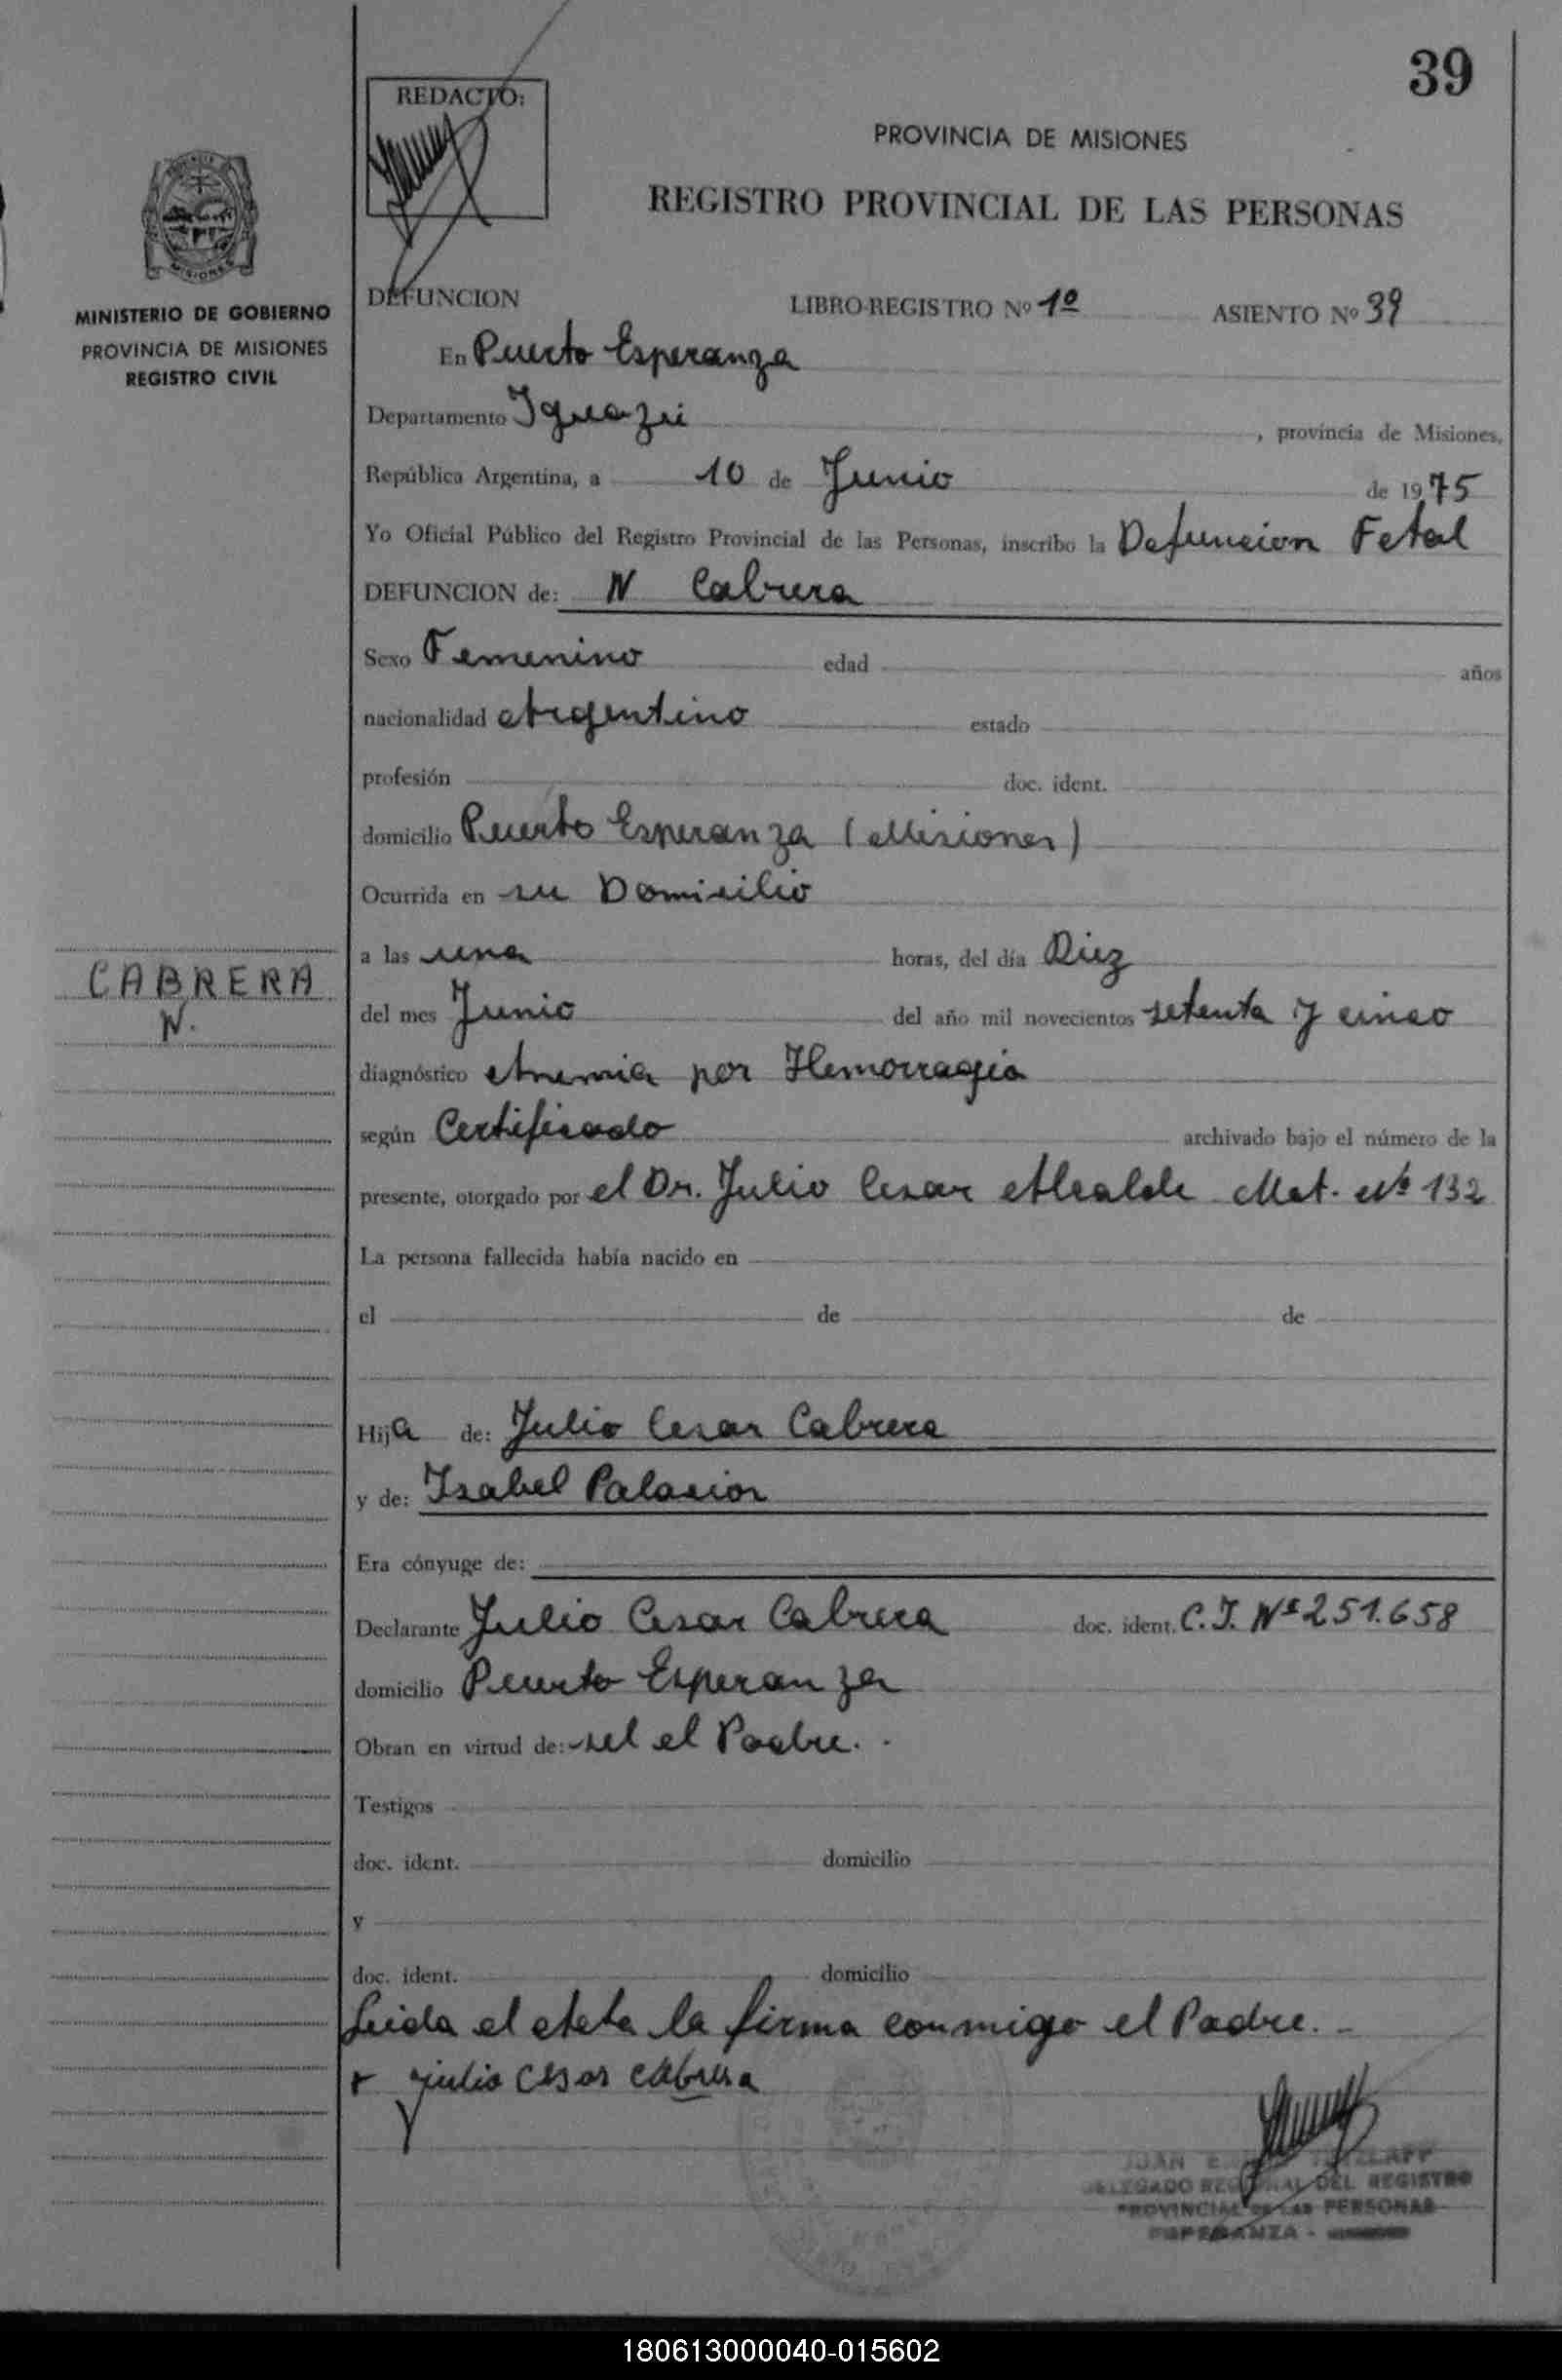 39
REDACTO:
PROVINCIA DE MISIONES
REGISTRO PROVINCIAL DE LAS PERSONAS
MISIONES
MINISTERIO DE GOBIERNO
PROVINCIA DE MISIONES
REGISTRO CIVIL
DEFUNCION LIBRO-REGISTRO Nº 1º ASIENTO Nº 39
En Puerto Esperanza
Departamento Iguazú, provincia de Misiones,
República Argentina, a 10 de Junio de 1975
Yo Oficial Público del Registro Provincial de las Personas, inscribo la Defuncion Fetal
DEFUNCION de: N Cabrera
Sexo Femenino edad años
nacionalidad Argentino estado
profesión doc. ident.
domicilio Puerto Esperanza (Misiones)
Ocurrida en su Domicilio
a las una horas, del día Diez
CABRERA
N.
del mes Junio del año mil novecientos setenta y cinco
diagnóstico Anemia por Hemorragia
según Certificado archivado bajo el número de la
presente, otorgado por el Dr. Julio Cesar Alcalde Mat. Nº 132
La persona fallecida había nacido en
el de de
Hija de: Julio Cesar Cabrera
y de: Isabel Palacios
Era cónyuge de:
Declarante Julio Cesar Cabrera doc. ident. C.I. Nº 251.658
domicilio Puerto Esperanza
Obran en virtud de: sel el Padre.
Testigos
doc. ident. domicilio
y
doc. ident. domicilio
Leida el Acta la firma conmigo el Padre.-
julio Cesar cabrera
JUAN
DELEGADO REGIONAL DEL REGISTRO
PROVINCIAL DE LAS PERSONAS
ESPERANZA -
180613000040-015602